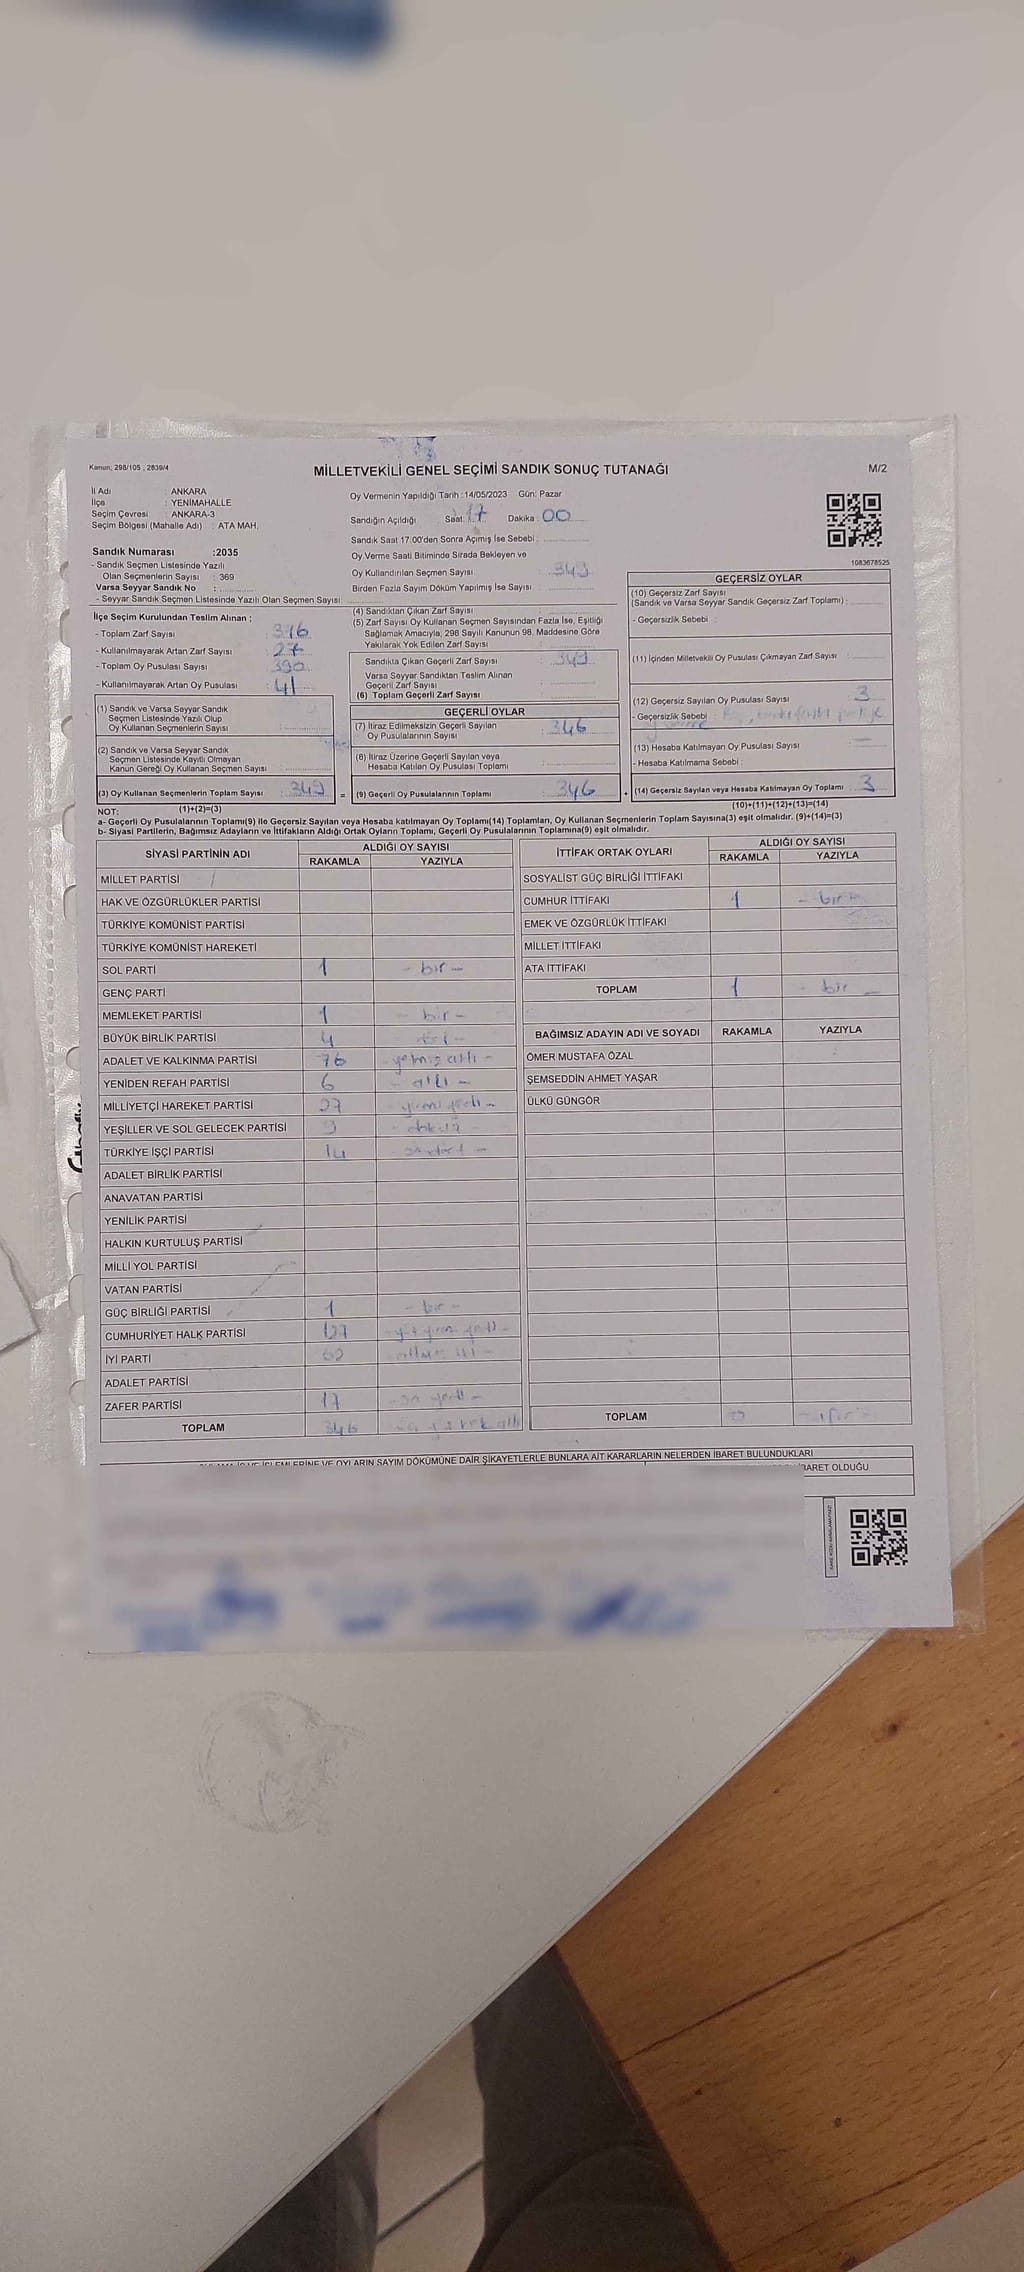 Kanun; 298/105 , 2839/4
MİLLETVEKİLİ GENEL SEÇİMİ SANDIK SONUÇ TUTANAĞI
M/2
İl Adı : ANKARA
İlçe : YENİMAHALLE
Seçim Çevresi : ANKARA-3
Seçim Bölgesi (Mahalle Adı) : ATA MAH.
Sandık Numarası :2035
- Sandık Seçmen Listesinde Yazılı
Olan Seçmenlerin Sayısı : 369
Varsa Seyyar Sandık No :
- Seyyar Sandık Seçmen Listesinde Yazılı Olan Seçmen Sayısı:
Oy Vermenin Yapıldığı Tarih :14/05/2023 Gün: Pazar
Sandığın Açıldığı Saat: 17 Dakika : 00
Sandık Saat 17:00'den Sonra Açımış İse Sebebi :
Oy Verme Saati Bitiminde Sırada Bekleyen ve
Oy Kullandırılan Seçmen Sayısı : 349
Birden Fazla Sayım Döküm Yapılmış İse Sayısı :
1083678525
İlçe Seçim Kurulundan Teslim Alınan ;
- Toplam Zarf Sayısı : 376
- Kullanılmayarak Artan Zarf Sayısı : 27
- Toplam Oy Pusulası Sayısı : 390
- Kullanılmayarak Artan Oy Pusulası : 41
(1) Sandık ve Varsa Seyyar Sandık
Seçmen Listesinde Yazılı Olup
Oy Kullanan Seçmenlerin Sayısı :
(2) Sandık ve Varsa Seyyar Sandık
Seçmen Listesinde Kayıtlı Olmayan
Kanun Gereği Oy Kullanan Seçmen Sayısı :
(3) Oy Kullanan Seçmenlerin Toplam Sayısı : 349 =
(4) Sandıktan Çıkan Zarf Sayısı :
(5) Zarf Sayısı Oy Kullanan Seçmen Sayısından Fazla İse, Eşitliği
Sağlamak Amacıyla; 298 Sayılı Kanunun 98. Maddesine Göre
Yakılarak Yok Edilen Zarf Sayısı :
Sandıkta Çıkan Geçerli Zarf Sayısı : 349
Varsa Seyyar Sandıktan Teslim Alınan
Geçerli Zarf Sayısı :
(6) Toplam Geçerli Zarf Sayısı :
GEÇERLİ OYLAR
(7) İtiraz Edilmeksizin Geçerli Sayılan
Oy Pusulalarının Sayısı : 346
(8) İtiraz Üzerine Geçerli Sayılan veya
Hesaba Katılan Oy Pusulası Toplamı :
(9) Geçerli Oy Pusulalarının Toplamı : 346 +
GEÇERSİZ OYLAR
(10) Geçersiz Zarf Sayısı
(Sandık ve Varsa Seyyar Sandık Geçersiz Zarf Toplamı) :
- Geçersizlik Sebebi :
(11) İçinden Milletvekili Oy Pusulası Çıkmayan Zarf Sayısı :
(12) Geçersiz Sayılan Oy Pusulası Sayısı : 3
- Geçersizlik Sebebi :
(13) Hesaba Katılmayan Oy Pusulası Sayısı : —
- Hesaba Katılmama Sebebi :
(14) Geçersiz Sayılan veya Hesaba Katılmayan Oy Toplamı : 3
NOT: (1)+(2)=(3) (10)+(11)+(12)+(13)=(14)
a- Geçerli Oy Pusulalarının Toplamı(9) ile Geçersiz Sayılan veya Hesaba katılmayan Oy Toplamı(14) Toplamları, Oy Kullanan Seçmenlerin Toplam Sayısına(3) eşit olmalıdır. (9)+(14)=(3)
b- Siyasi Partilerin, Bağımsız Adayların ve İttifakların Aldığı Ortak Oyların Toplamı, Geçerli Oy Pusulalarının Toplamına(9) eşit olmalıdır.
SİYASİ PARTİNİN ADI ALDIĞI OY SAYISI
RAKAMLA YAZIYLA
MİLLET PARTİSİ
HAK VE ÖZGÜRLÜKLER PARTİSİ
TÜRKİYE KOMÜNİST PARTİSİ
TÜRKİYE KOMÜNİST HAREKETİ
SOL PARTİ 1 - bir -
GENÇ PARTİ
MEMLEKET PARTİSİ 1 - bir -
BÜYÜK BİRLİK PARTİSİ 4
ADALET VE KALKINMA PARTİSİ 76 yetmiş altı -
YENİDEN REFAH PARTİSİ 6 - altı -
MİLLİYETÇİ HAREKET PARTİSİ 27 - yirmi yedi -
YEŞİLLER VE SOL GELECEK PARTİSİ 9 - dokuz -
TÜRKİYE İŞÇİ PARTİSİ 14 - on dört -
ADALET BİRLİK PARTİSİ
ANAVATAN PARTİSİ
YENİLİK PARTİSİ
HALKIN KURTULUŞ PARTİSİ
MİLLİ YOL PARTİSİ
VATAN PARTİSİ
GÜÇ BİRLİĞİ PARTİSİ 1 - bir -
CUMHURİYET HALK PARTİSİ 127 - yüz yirmi yedi -
İYİ PARTİ 62 - altmış iki -
ADALET PARTİSİ
ZAFER PARTİSİ 17 - on yedi -
TOPLAM 346
İTTİFAK ORTAK OYLARI ALDIĞI OY SAYISI
RAKAMLA YAZIYLA
SOSYALİST GÜÇ BİRLİĞİ İTTİFAKI
CUMHUR İTTİFAKI 1 - bir -
EMEK VE ÖZGÜRLÜK İTTİFAKI
MİLLET İTTİFAKI
ATA İTTİFAKI
TOPLAM 1 - bir -
BAĞIMSIZ ADAYIN ADI VE SOYADI RAKAMLA YAZIYLA
ÖMER MUSTAFA ÖZAL
ŞEMSEDDİN AHMET YAŞAR
ÜLKÜ GÜNGÖR
TOPLAM 0 - sıfır -
OYLARIN SAYIM DÖKÜMÜNE DAİR ŞİKAYETLERLE BUNLARA AİT KARARLARIN NELERDEN İBARET BULUNDUKLARI
İBARET OLDUĞU